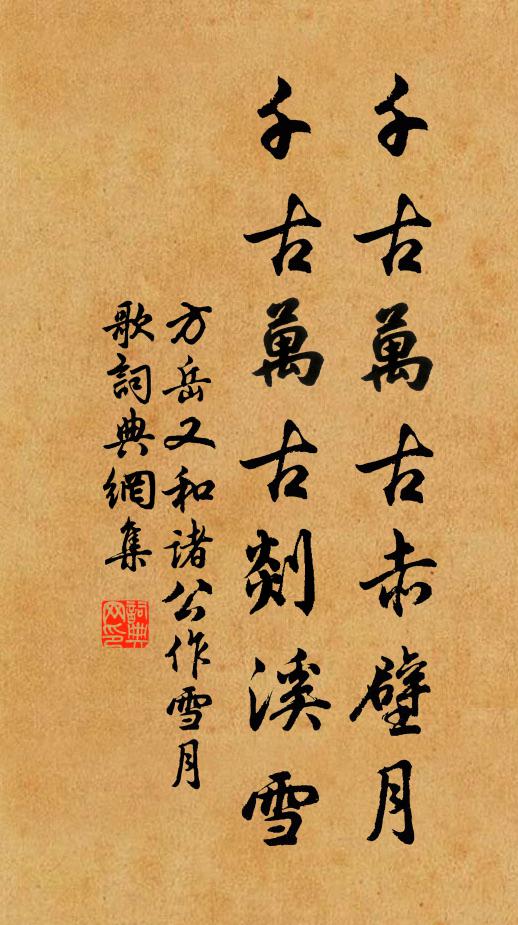 千古萬古赤壁月
千古萬古剡溪雪
方岳又和諸公作雪月
歌詞典網集
詞典
网印